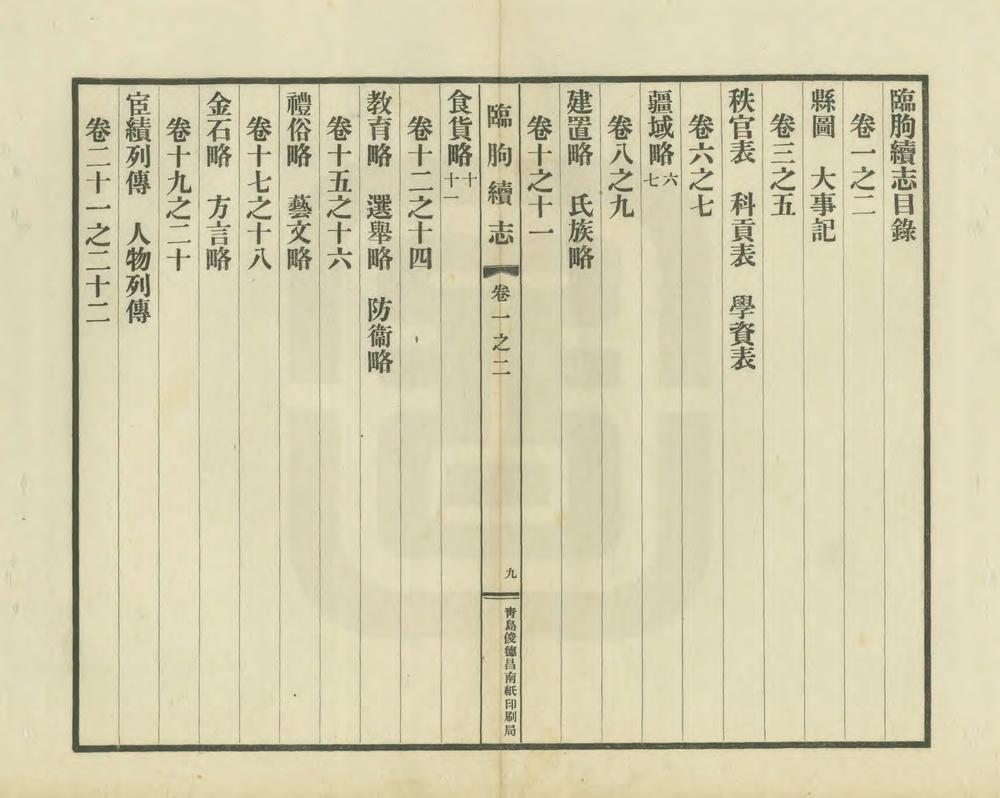 臨朐續志目錄
卷一之二
縣圖　大事記
卷三之五
秩官表　科貢表　學資表
卷六之七
疆域略六七
卷八之九
建置略　氏族略
卷十之十一
臨朐續志　卷一之二　九　青島俊德昌南紙印刷局
食貨略十十一
卷十二之十四
教育略　選舉略　防衞略
卷十五之十六
禮俗略　藝文略
卷十七之十八
金石略　方言略
卷十九之二十
宦績列傳　人物列傳
卷二十一之二十二